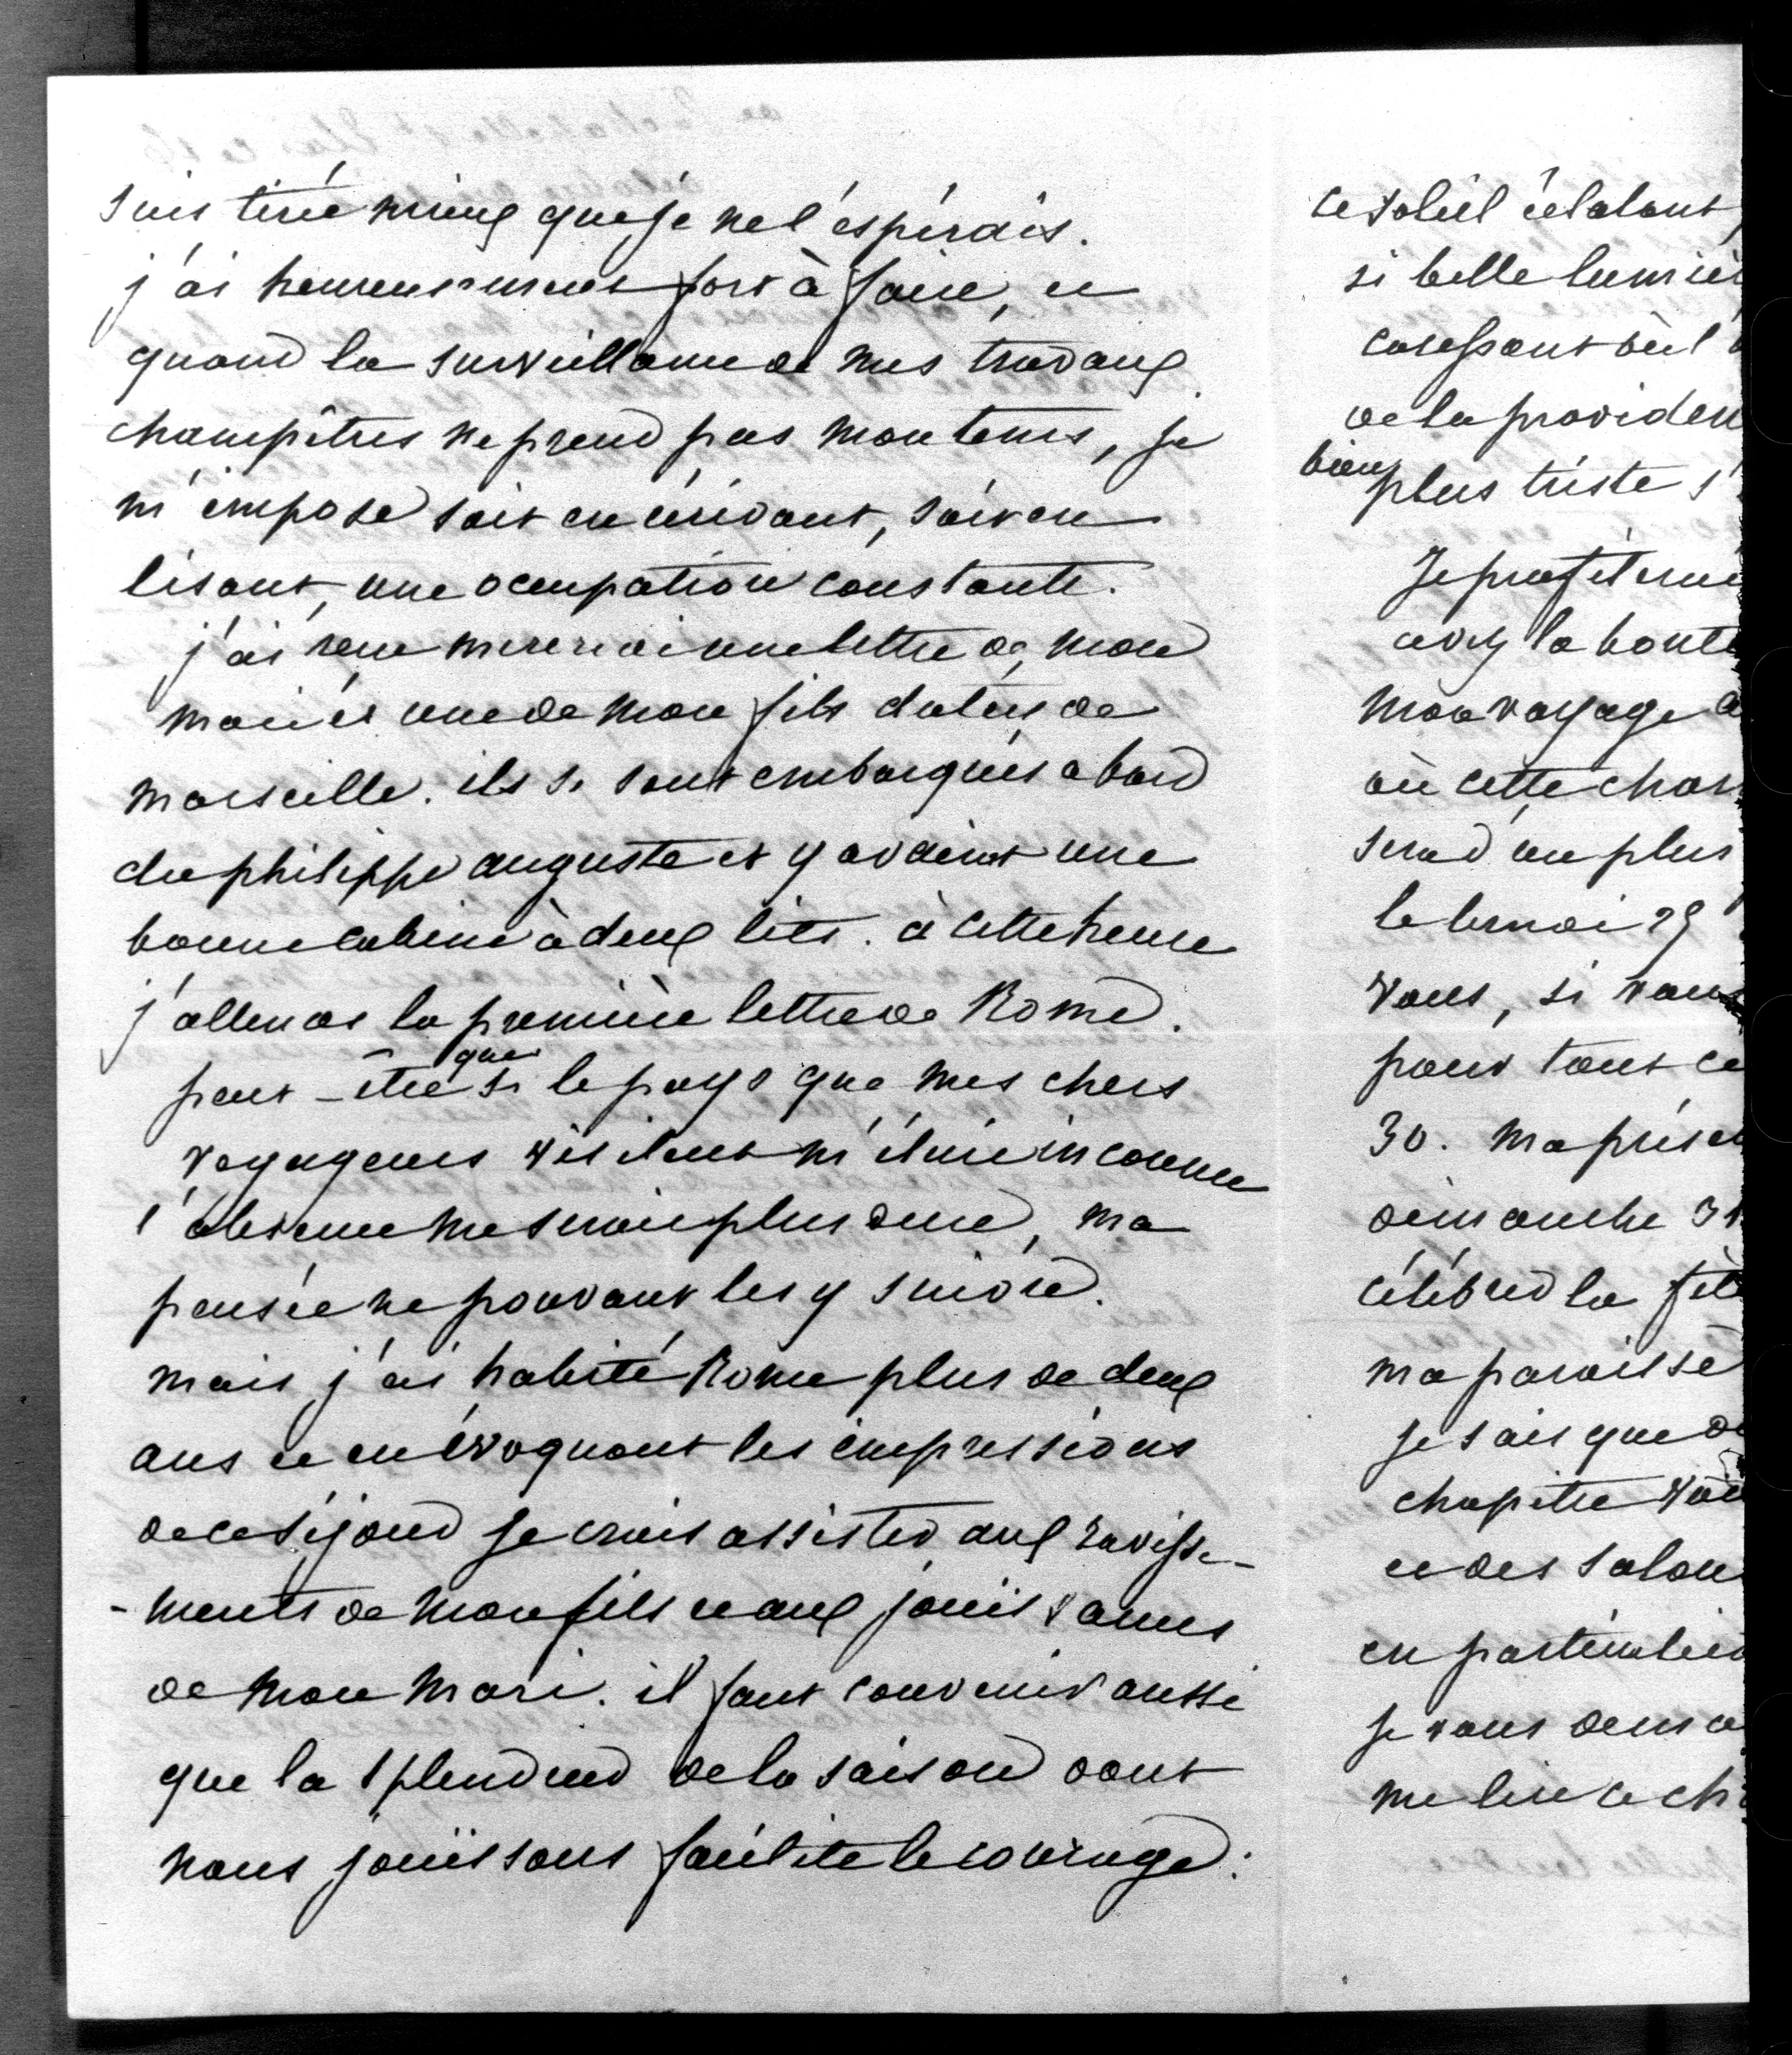 suis tirée mieux que je ne l'éspérais.
j'ai heureusement fort à faire, et
quand la surveillance de mes travaux
champêtres ne prend pas mon tems, je
m'impose soit en écrivant, soit en
lisant, une occupation constante.
j'ai reçu mercredi une lettre de mon
mari et une de mon fils datées de
marseille. ils se sont embarqués a bord
du philippe auguste et y avaient une
bonne cabine à deux lits. à cette heure
j'attends la première lettre de Rome.
peut-être que si le pays que mes chers
voyageurs visitent m'était inconnu
l'absence me serait plus dure, ma
pensée ne pouvant les y suivre.
mais j'ai habité Rome plus de deux
ans et en évoquant les impressions
de ce séjour je crois assister aux ravisse-
-ments de mon fils et aux jouissances
de mon mari. il faut convenir aussi
que la splendeur de la saison dont
nous jouissons facilite le courage:
ce soleil éclatant,
si belle lumiè
caressant où l
de la providen
bien plus triste s'
Je profiterai
avez la bonté
mon voyage a
où cette char
sera d'un plus
le lundi 29
vous, si vous
pour tout ce
30. ma présen
dimanche 31
célébrer la fête
ma paroisse
je sais que de
chapitre
et des salon
en particulier
je vous dema
me lire ce ch